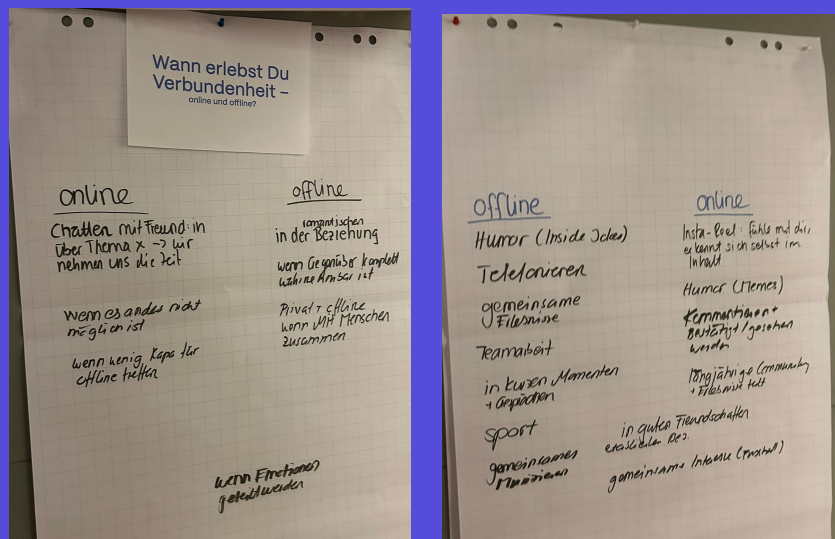 Wann erlebst Du
Verbundenheit –
online und offline?
online
Chatten mit Freund:in
über Thema x -> wir
nehmen uns die Zeit
wenn es anders nicht
möglich ist
wenn wenig Kapa für
offline treffen
offline
romantischen
in der Beziehung
wenn Gegenüber komplett
wahrnehmbar ist
Privat + offline
wenn Mit Menschen
zusammen
wenn Emotionen
geteilt werden
offline
Humor (Inside Jokes)
Telefonieren
gemeinsame
Erlebnisse
Teamarbeit
in kurzen Momenten
+ Gesprächen
sport
gemeinsames
Musizieren
online
Insta-Reel: fühls mit dir,
erkennt sich selbst im
Inhalt
Humor (Memes)
Kommentieren +
Bestätigt/gesehen
werden
langjährige Community
+ Erlebnisse teilt
in guten Freundschaften
gemeinsame Interesse